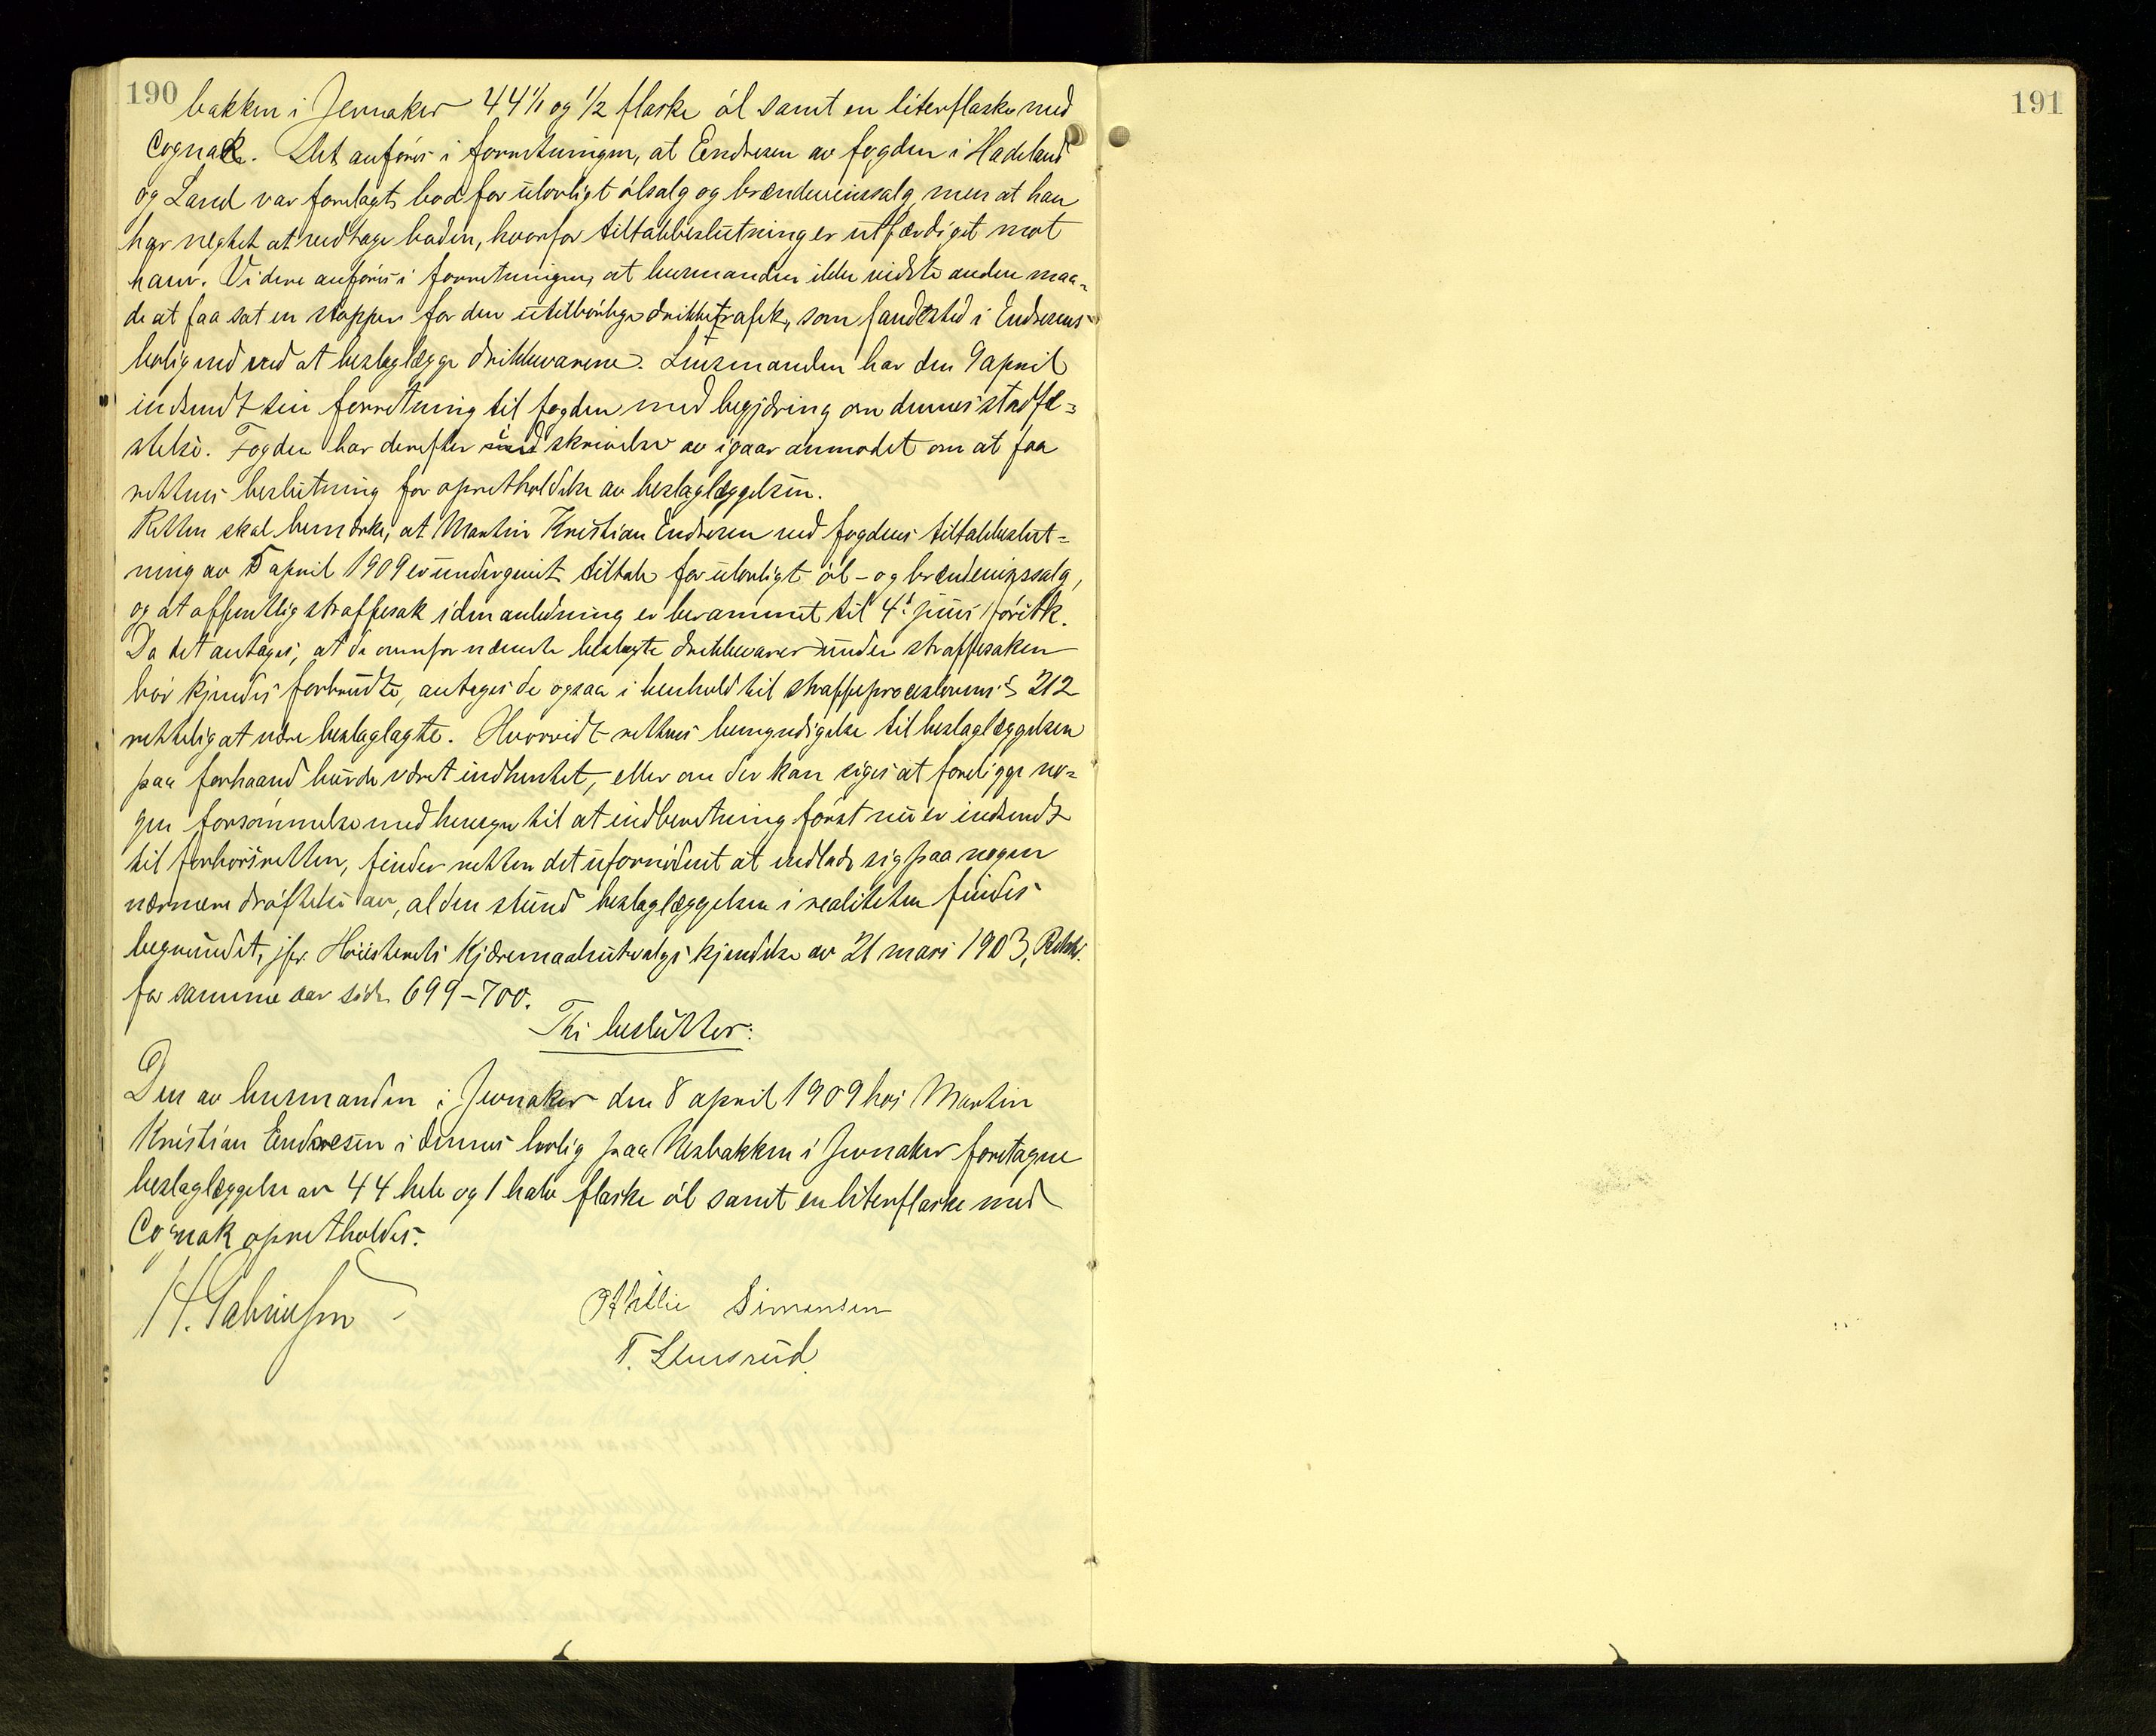 190
bakken i Jevnaker 44 1/1 og 1/2 flaske öl samt en literflaske med
Cognak. Det anföres i forretningen, at Endresen av fogden i Hadeland
og Land var forelagt bod for ulovligt ölsalg og brændevinssalg men at han
har negtet at vedtage boden, hvorfor tiltalebeslutning er utfærdiget mot
ham. Videre anföres i forretningen, at lensmanden ikke vidste anden maa-
de at faa sat en stopper for den utilbörlige drikketrafik, som fandt sted i Endresens
bolig end ved at beslaglægge drikkevarene. Lensmanden har den 9 april
indsendt sin forretning til fogden med begjæring om dennes stadfæ-
stelse. Fogden har derefter i skrivelse av igaar anmodet om at faa
rettens beslutning for opretholdelse av beslaglæggelsen.
Retten skal bemærke, at Martin Kristian Endresen ved fogdens tiltalebeslut-
ning av 5 april 1909 er undergivet tiltale for ulovligt öl- og brændevinssalg,
og at offentlig straffesak i den anledning er berammet til 4de juni förstk.
Da det antages, at de ovenfor nævnte beslagte drikkevarer under straffesaken
bör kjendes forbrudte, antages de ogsaa i henhold til straffeproceslovens § 212
rettelig at være beslaglagte. Hvorvidt rettens bemyndigelse til beslaglæggelsen
paa forhaand burde været indhentet, eller om der kan siges at foreligge no-
gen forsömmelse med hensyn til at indberetning först nu er indsendt
til forhörsretten, finder retten det ufornödent at indlade sig paa nogen
nærmere dröftelse av, al den stund beslaglæggelsen i realiteten findes
begrundet, jfr. Höiesterets Kjæremaalsutvalgs kjendelse av 21 mars 1903, Retst.
for samme aar side 699-700.
Thi besluttes:
Den av lensmanden i Jevnaker den 8 april 1909 hos Martin
Kristian Endresen i dennes bolig paa Nesbakken i Jevnaker foretagne
beslaglæggelse av 44 hele og 1 halv flaske öl samt en literflaske med
Cognak opretholdes.
H. Gabrielsen
Othilie Simensen
T. Lunsrud.
191